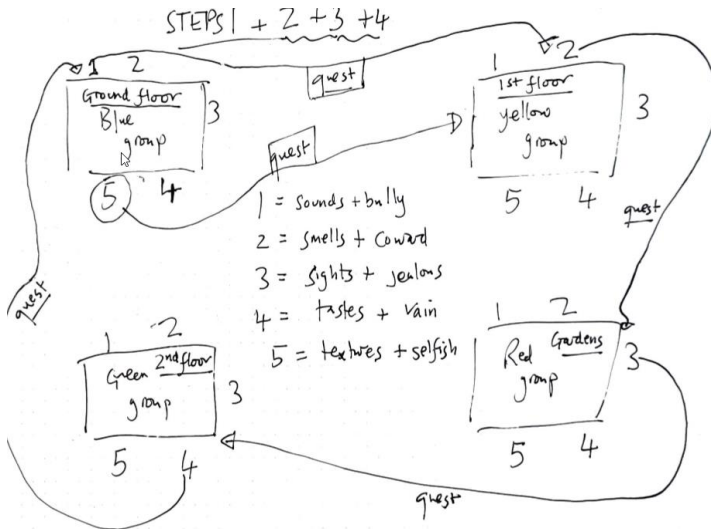 STEPS 1 + 2 + 3 + 4
1 2
Ground floor
Blue
group
3
5 4
guest
guest
1 2
1st floor
yellow
group
3
5 4
1 = sounds + bully
2 = smells + coward
3 = sights + jealous
4 = tastes + vain
5 = textures + selfish
guest
guest
1 2
Green 2nd floor
group
3
5 4
1 2
Red Gardens
group
3
5 4
guest